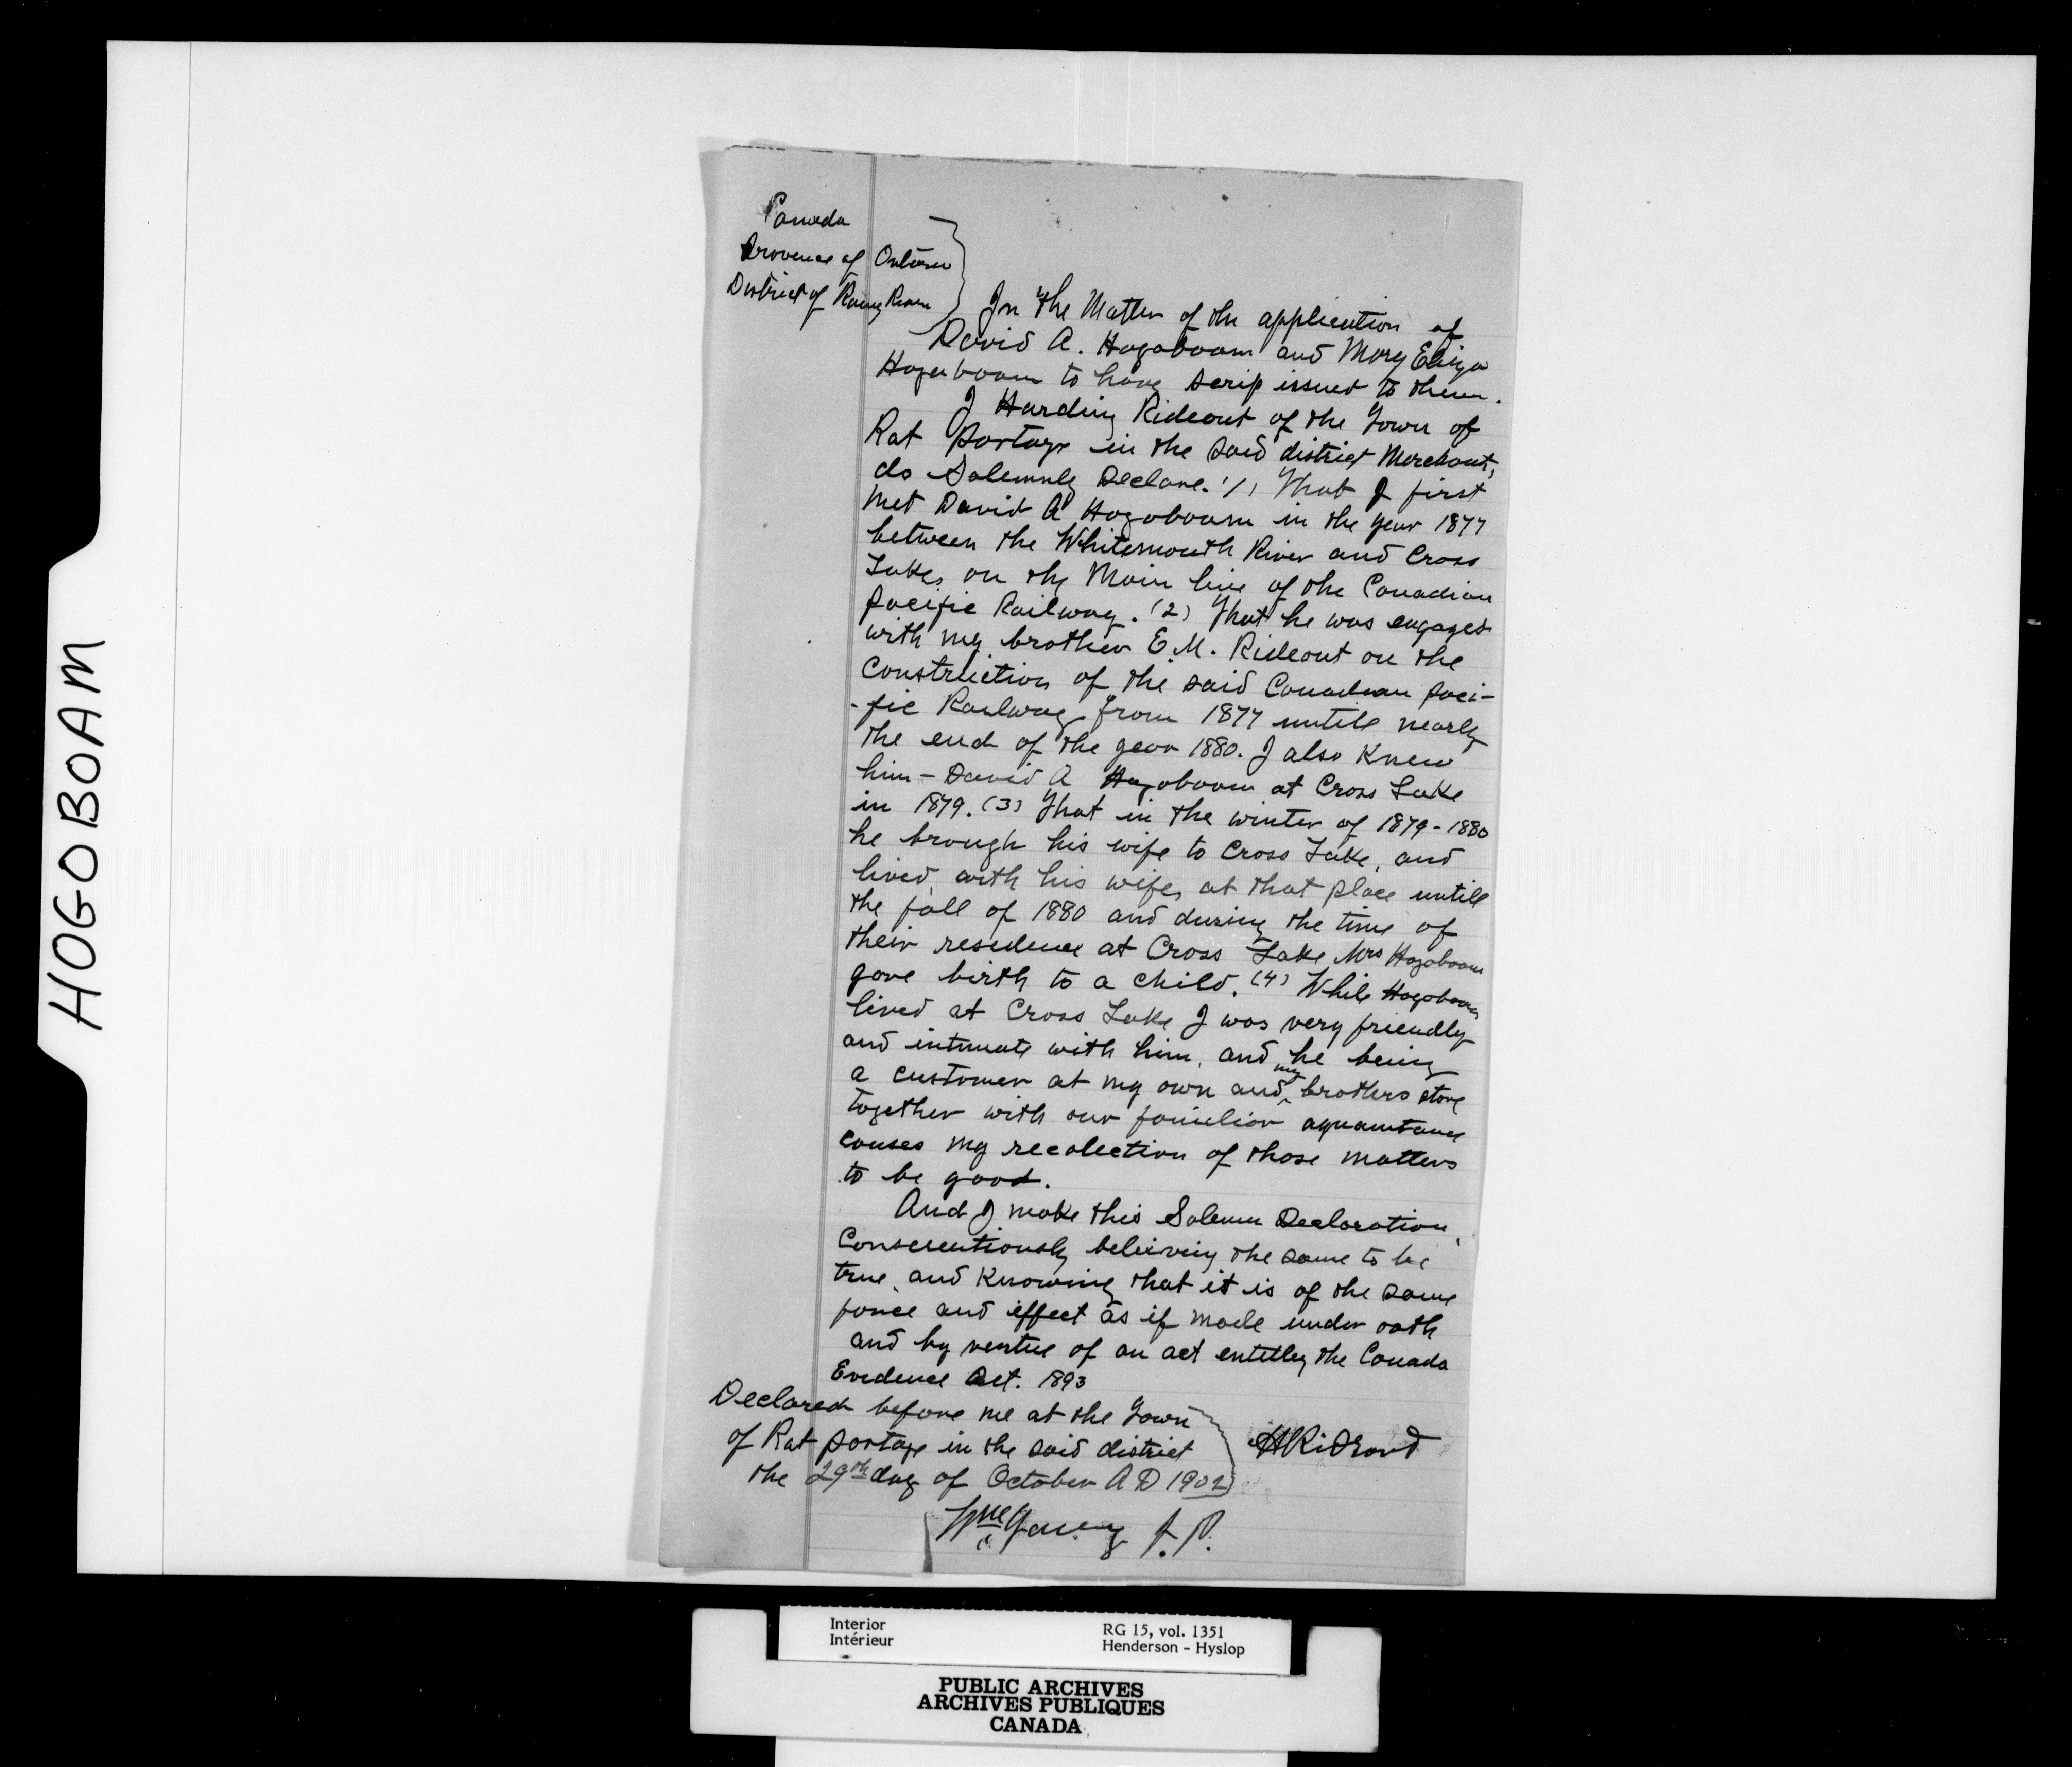 HOGOBOAM
Canada
Province of Ontario
District of Rainy River
In the Matter of the application of
David A. Hogaboom and Mary Eliza
Hogaboom to have scrip issued to them.
I Harding Rideout of the Town of
Rat Portage in the said district Merchant,
do Solemnly Declare. (1) That I first
met David A Hogaboom in the year 1877
between the Whitemouth River and Cross
Lake, on the Main line of the Canadian
Pacific Railway. (2) That he was engaged
with my brother E M. Rideout on the
construction of the said Canadian Paci-
-fic Railway from 1877 untill nearly
the end of the year 1880. I also Knew
him - David A Hogaboom at Cross Lake
in 1879. (3) That in the winter of 1879-1880
he brough his wife to Cross Lake, and
lived with his wife, at that place untill
the fall of 1880 and during the time of
their residence at Cross Lake Mrs Hogaboom
gave birth to a child. (4) While Hogaboom
lived at Cross Lake I was very friendly
and intimate with him, and he being
a customer at my own and my brothers store
together with our familiar aquaintance
causes my recolection of those matters
to be good.
And I make this Solemn Declaration,
Conscientiously believing the same to be
true, and Knowing that it is of the same
force and effect as if made under oath
and by vertue of an act entitley the Canada
Evidence Act. 1893
Declared before me at the Town
of Rat Portage in the said district
the 29th day of October A D 1902
H Rideout
J.P.
Interior
Intérieur
RG 15, vol. 1351
Henderson - Hyslop
PUBLIC ARCHIVES
ARCHIVES PUBLIQUES
CANADA